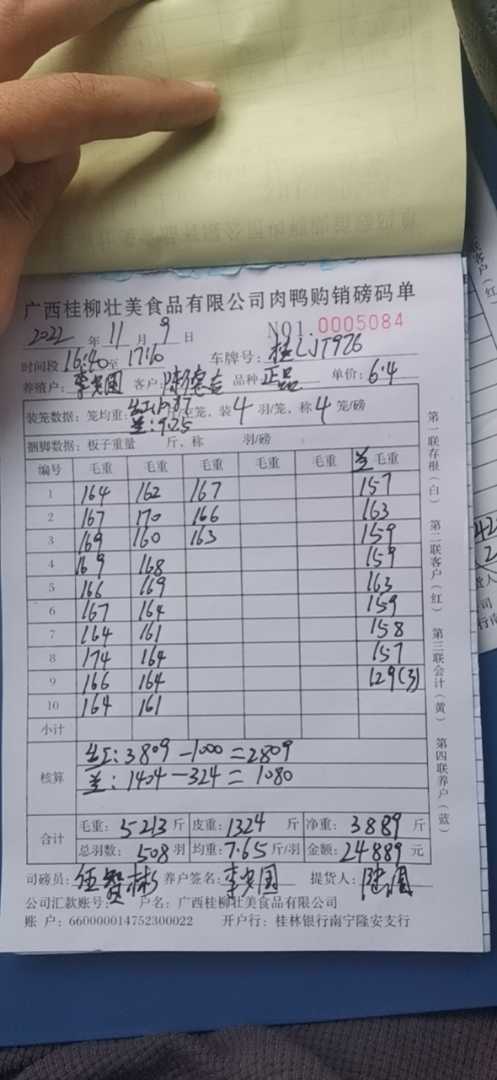 广西桂柳壮美食品有限公司肉鸭购销磅码单
2022 年 11 月 9 日 NO1.0005084
时间段 16:40 至 17:10 车牌号:
养殖户: 客户: 品种 正品 单价: 6.4
装笼数据: 笼均重: 斤/笼, 装 4 羽/笼, 称 4 笼/磅
捆脚数据: 板子重量 斤, 称 羽/磅
编号 毛重 毛重 毛重 毛重 毛重 毛重
1 164 162 167 157
2 167 170 166 163
3 169 160 163 159
4 169 168 159
5 166 169 163
6 167 164 159
7 164 161 158
8 174 164 157
9 166 164 129(3)
10 164 161
小计
核算
3809-1000=2809
1404-324=1080
合计
毛重: 5213 斤 皮重: 1324 斤 净重: 3889 斤
总羽数: 508 羽 均重: 7.65 斤/羽 金额: 24889 元
司磅员: 养户签名: 提货人:
公司汇款账号: 户名: 广西桂柳壮美食品有限公司
账 户: 660000014752300022 开户行: 桂林银行南宁隆安支行
第一联存根(白) 第二联客户(红) 第三联会计(黄) 第四联养户(蓝)